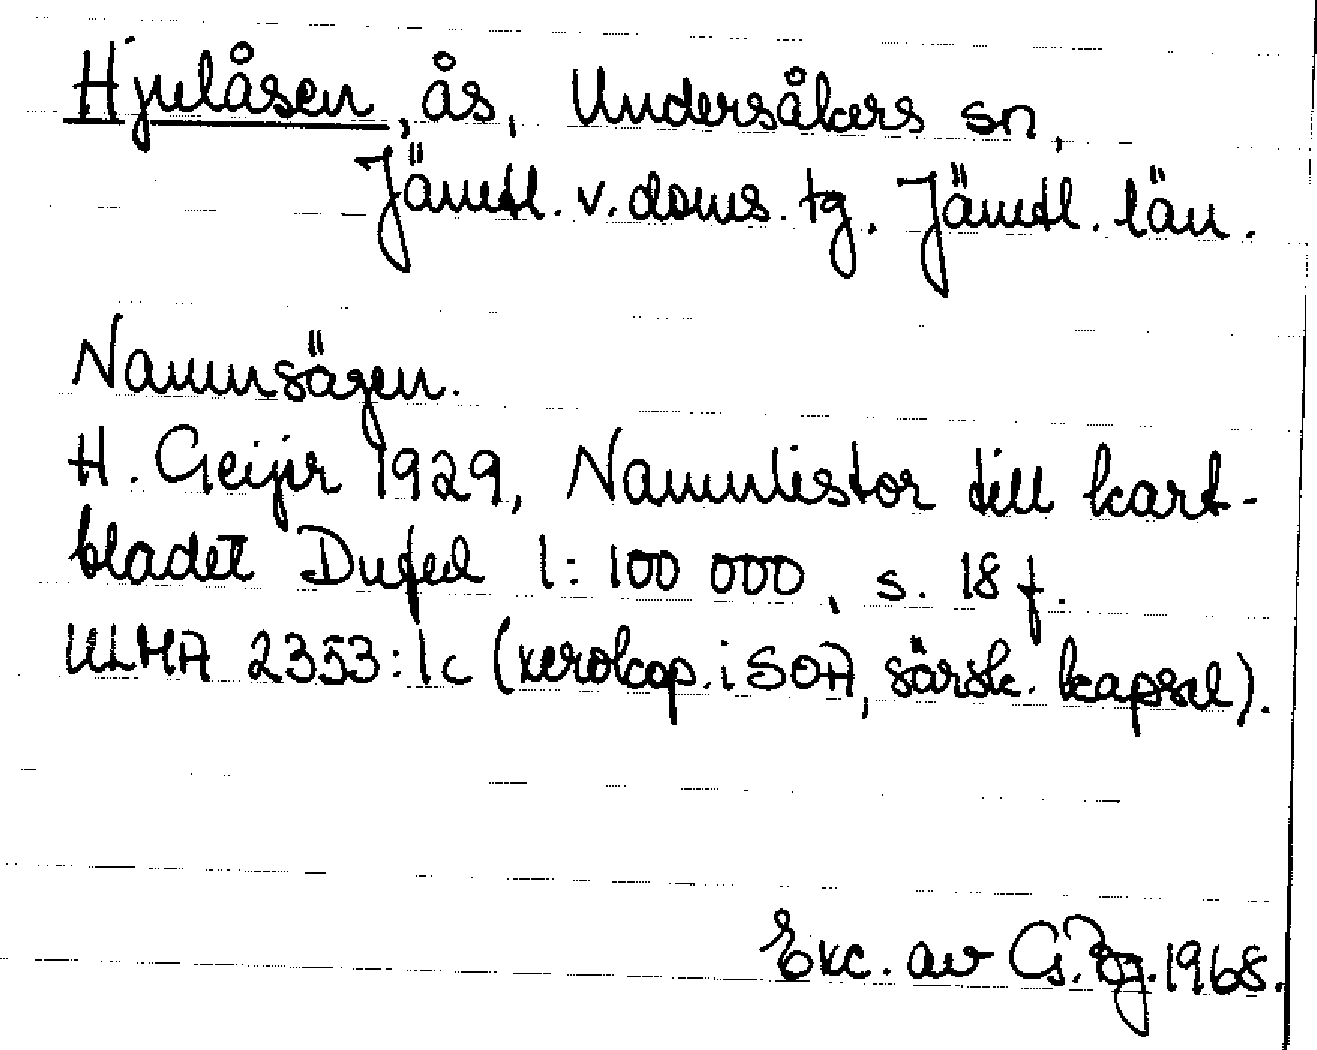 Hjulåsen, ås, Undersåkers sn,
Jämtl. v. doms. tg. Jämtl. län.
Namnsägen.
H. Geijer 1929, Namnlistor till kart-
bladet Dufed 1:100 000, s. 18 f.
ULMA 2353:1c (xerokop. i SOA, särsk. kapsel).
Exc. av G. Bg. 1968.